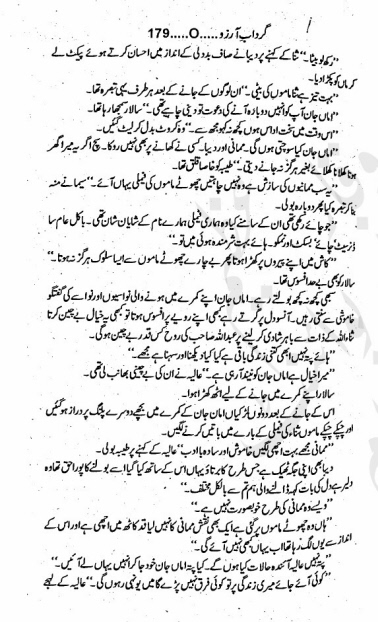 گرداب آرزو.....O.....179
"رکھ لو بیٹا۔" ثنا کے کہنے پر دیبا نے صاف بددلی کے انداز میں احسان کرتے ہوئے پیکٹ لے
کر ماں کو پکڑا دیا۔
"بہت تیز ہے ثنا ماموں کی بیٹی۔" ان لوگوں کے جانے کے بعد ہر طرف یہی تبصرہ تھا۔
"اماں جان آپ کو انہیں دوبارہ آنے کی دعوت تو دینی چاہیے تھی۔" سالار سمجھا رہا تھا۔
"اس وقت میں سخت اداس ہوں کچھ نہ کہو مجھ سے۔" وہ کروٹ بدل کر لیٹ گئیں۔
"اماں جان کیا سوچتی ہوں گی۔ ممانی اور دیبا۔ کسی نے کھانے پر بھی نہیں روکا۔ سچ اگر یہ میرا گھر
ہوتا کھانا کھلائے بغیر ہرگز نہ جانے دیتی۔" طیبہ کو خاصا قلق تھا۔
"یہ سب ممانیوں کی سازش ہے وہ نہیں چاہتیں چھوٹے ماموں کی فیملی یہاں آئے۔" سیما نے منہ
بنا کر تبصرہ کیا پھر دوبارہ بولی۔
"جو چائے رکھی تھی ان کے سامنے کیا وہ ہماری فیملی ہمارے نام کے شایان شان تھی۔ بالکل عام سا
ڈنر سیٹ چائے بسکٹ اور نمکو۔ ہائے بہت شرمندہ ہوئی میں تو۔"
"کاش میں اپنے پیروں پر کھڑا ہوتا پھر بے چارے چھوٹے ماموں سے ایسا سلوک ہرگز نہ ہوتا۔"
سالار کو بھی بے حد افسوس تھا۔
سبھی کچھ نہ کچھ بولتے رہے۔ اماں جان اپنے کمرے میں ہونے والی نواسیوں اور نواسے کی گفتگو
خاموشی سے سنتی رہیں۔ آنسو دل پر گرتے رہے کبھی اپنے رویے پر افسوس ہوتا تو کبھی یہ خیال بے چین کرتا
ثناء اللہ کے ذات سے باہر شادی کر لینے پر عبداللہ صاحب کی روح کس قدر بے چین ہو گی۔
"ہائے پتہ نہیں ابھی کتنی زندگی باقی ہے کیا کیا دیکھنا اور سہنا ہے مجھے۔"
"میرا خیال ہے اماں جان کو نیند آ رہی ہے۔" عالیہ نے ان کی بے چینی بھانپ لی تھی۔
سالار اپنے کمرے میں جانے کے لیے اٹھ کھڑا ہوا۔
اس کے جانے کے بعد وہ دونوں لڑکیاں اماں جان کے کمرے میں بچھے دوسرے پلنگ پر دراز ہو گئیں
اور چپکے چپکے ماموں ثناء کی فیملی کے بارے میں باتیں کرنے لگیں۔
"ممانی مجھے بہت اچھی لگیں خاموش اور سادہ با ادب" عالیہ کے کہنے پر طیبہ بولی۔
دیبا بھی اپنی جگہ ٹھیک ہے جس طرح کا برتاؤ یہاں اس کے ساتھ کیا گیا اسے بولنے کا پورا حق تھا وہ
دلیر ہے دل کی بات کہہ ڈالنے والی ہم تم سے بالکل مختلف۔"
"ویسے وہ ممانی کی طرح خوبصورت نہیں ہے۔"
"ہاں وہ چھوٹے ماموں پر گئی ہے ایک بھی نقش ممانی کا نہیں لیا قد کاٹھ میں اچھی ہے اور اس کے
انداز سے یوں لگ رہا تھا اب یہاں کبھی نہیں آئے گی۔"
"پتہ نہیں عالیہ آئندہ حالات کیا ہوں گے۔ کیا پتہ اماں جان خود جا کر انہیں یہاں لے آئیں۔"
"کوئی آئے جائے میری زندگی پر تو کوئی فرق نہیں پڑے گا میں یونہی رہوں گی۔" عالیہ کے لہجے